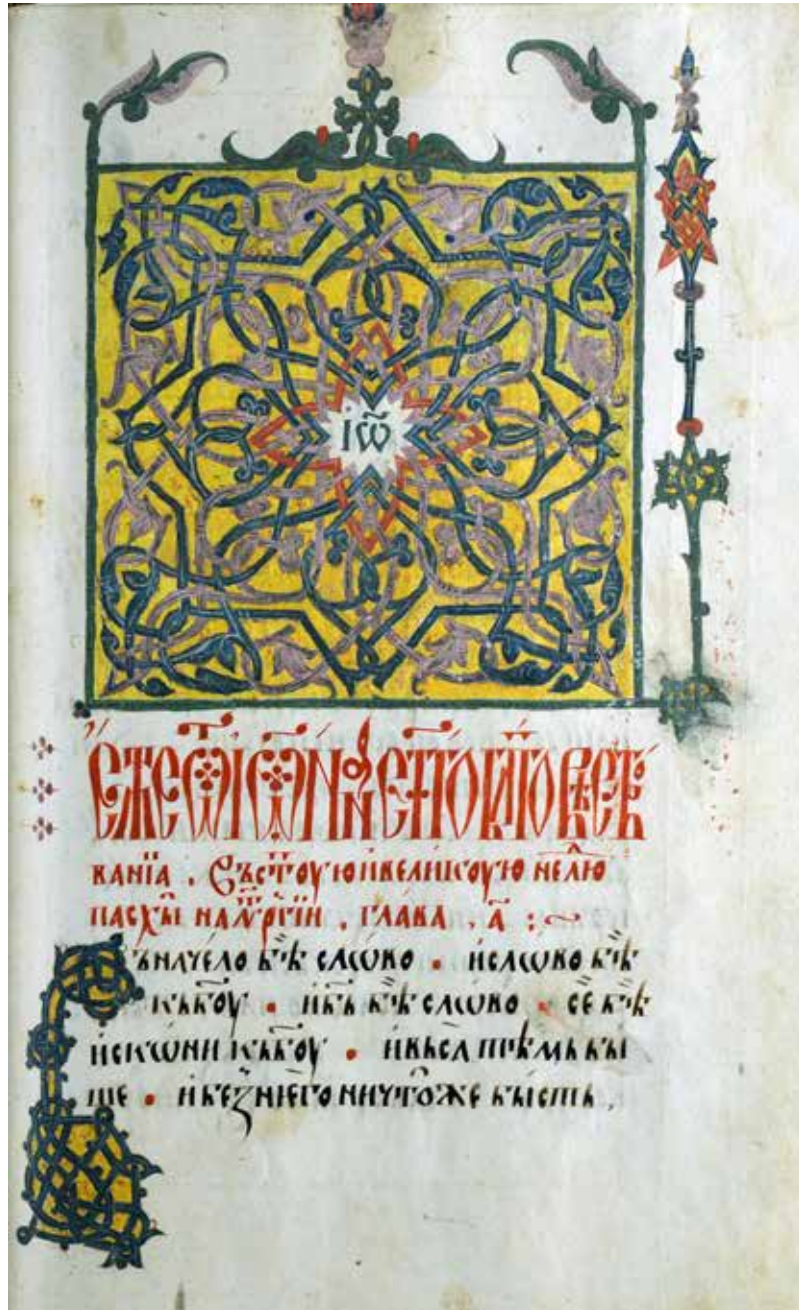 ІѠ҃
Є҆же ѿ Іѡ҃нна є҆ѵⷢ҇гого бл҃го вѣстⷡ҇о
ванїа . Въ ст҃ꙋю и҆ великоую не́лю
пасхы на лⷮꙋргїи . глава . а҃ : ~
Ъ начѧло бѣ сло́во . и҆ сло́во бѣ
къ б҃оу . и҆ б҃ъ бѣ сло́во . се́ бѣ
и҆скѡни къ б҃оу . и҆ въсѧ тѣмь бы
ше . и҆ без̾ нѥго ничто́же бы́сть .